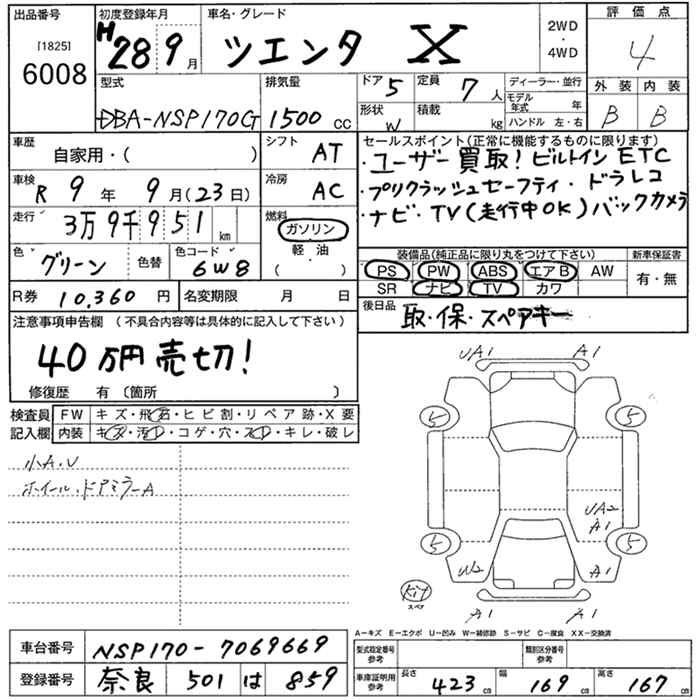 出品番号 初度登録年月 車名・グレード 2WD ・ 4WD 評価点
[1825] 6008 H28 9月 ツエンタ X 4
型式 排気量 ドア 5 定員 7人 ディーラー・並行 外装 内装
モデル年式 年
DBA-NSP170G 1500cc 形状 W 積載 kg ハンドル 左・右 B B
車歴 自家用・( ) シフト AT セールスポイント(正常に機能するものに限ります)
・ユーザー買取! ビルトインETC
車検 R 9年 9月(23日) 冷房 AC ・プリクラッシュセーフティ・ドラレコ
走行 3万9千951km 燃料 ガソリン ・ナビ・TV(走行中OK)バックカメラ
軽・油
( )
色 グリーン 色替 色コード 6W8 装備品(純正品に限り丸をつけて下さい) 新車保証書
PS PW ABS エアB AW 有・無
R券 10,360円 名変期限 月 日 SR ナビ TV カワ
注意事項申告欄 (不具合内容等は具体的に記入して下さい) 後日品 取・保・スペアキー
40万円売切!
修復歴 有 〔箇所 〕
検査員記入欄 FW キズ・飛石・ヒビ割・リペア跡・X要
内装 キズ・汚レ・コゲ・穴・スレ・キレ・破レ
小A.U
ホイール.ドアミラーA
UA1 A1
5 5
UA2
A1
5 5
W2 A1
Kit
スペア
A1 A1
A-キズ E-エクボ U-凹み W-補修跡 S-サビ C-腐食 XX-交換済
車台番号 NSP170-7069669 型式指定番号 参考 類別区分番号 参考
登録番号 奈良 501 は 859 車庫証明用 参考 長さ 423cm 幅 169cm 高さ 167cm